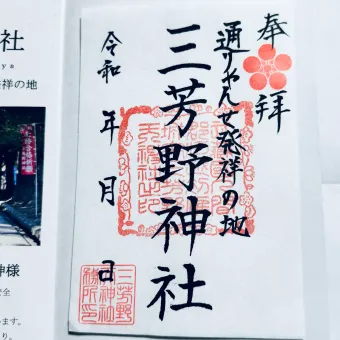 奉拝
通りゃんせ発祥の地
三芳野神社
令和 年 月 日
三芳野
神社
務所印
社
ya
祥の地
神様
安全
います。
り。